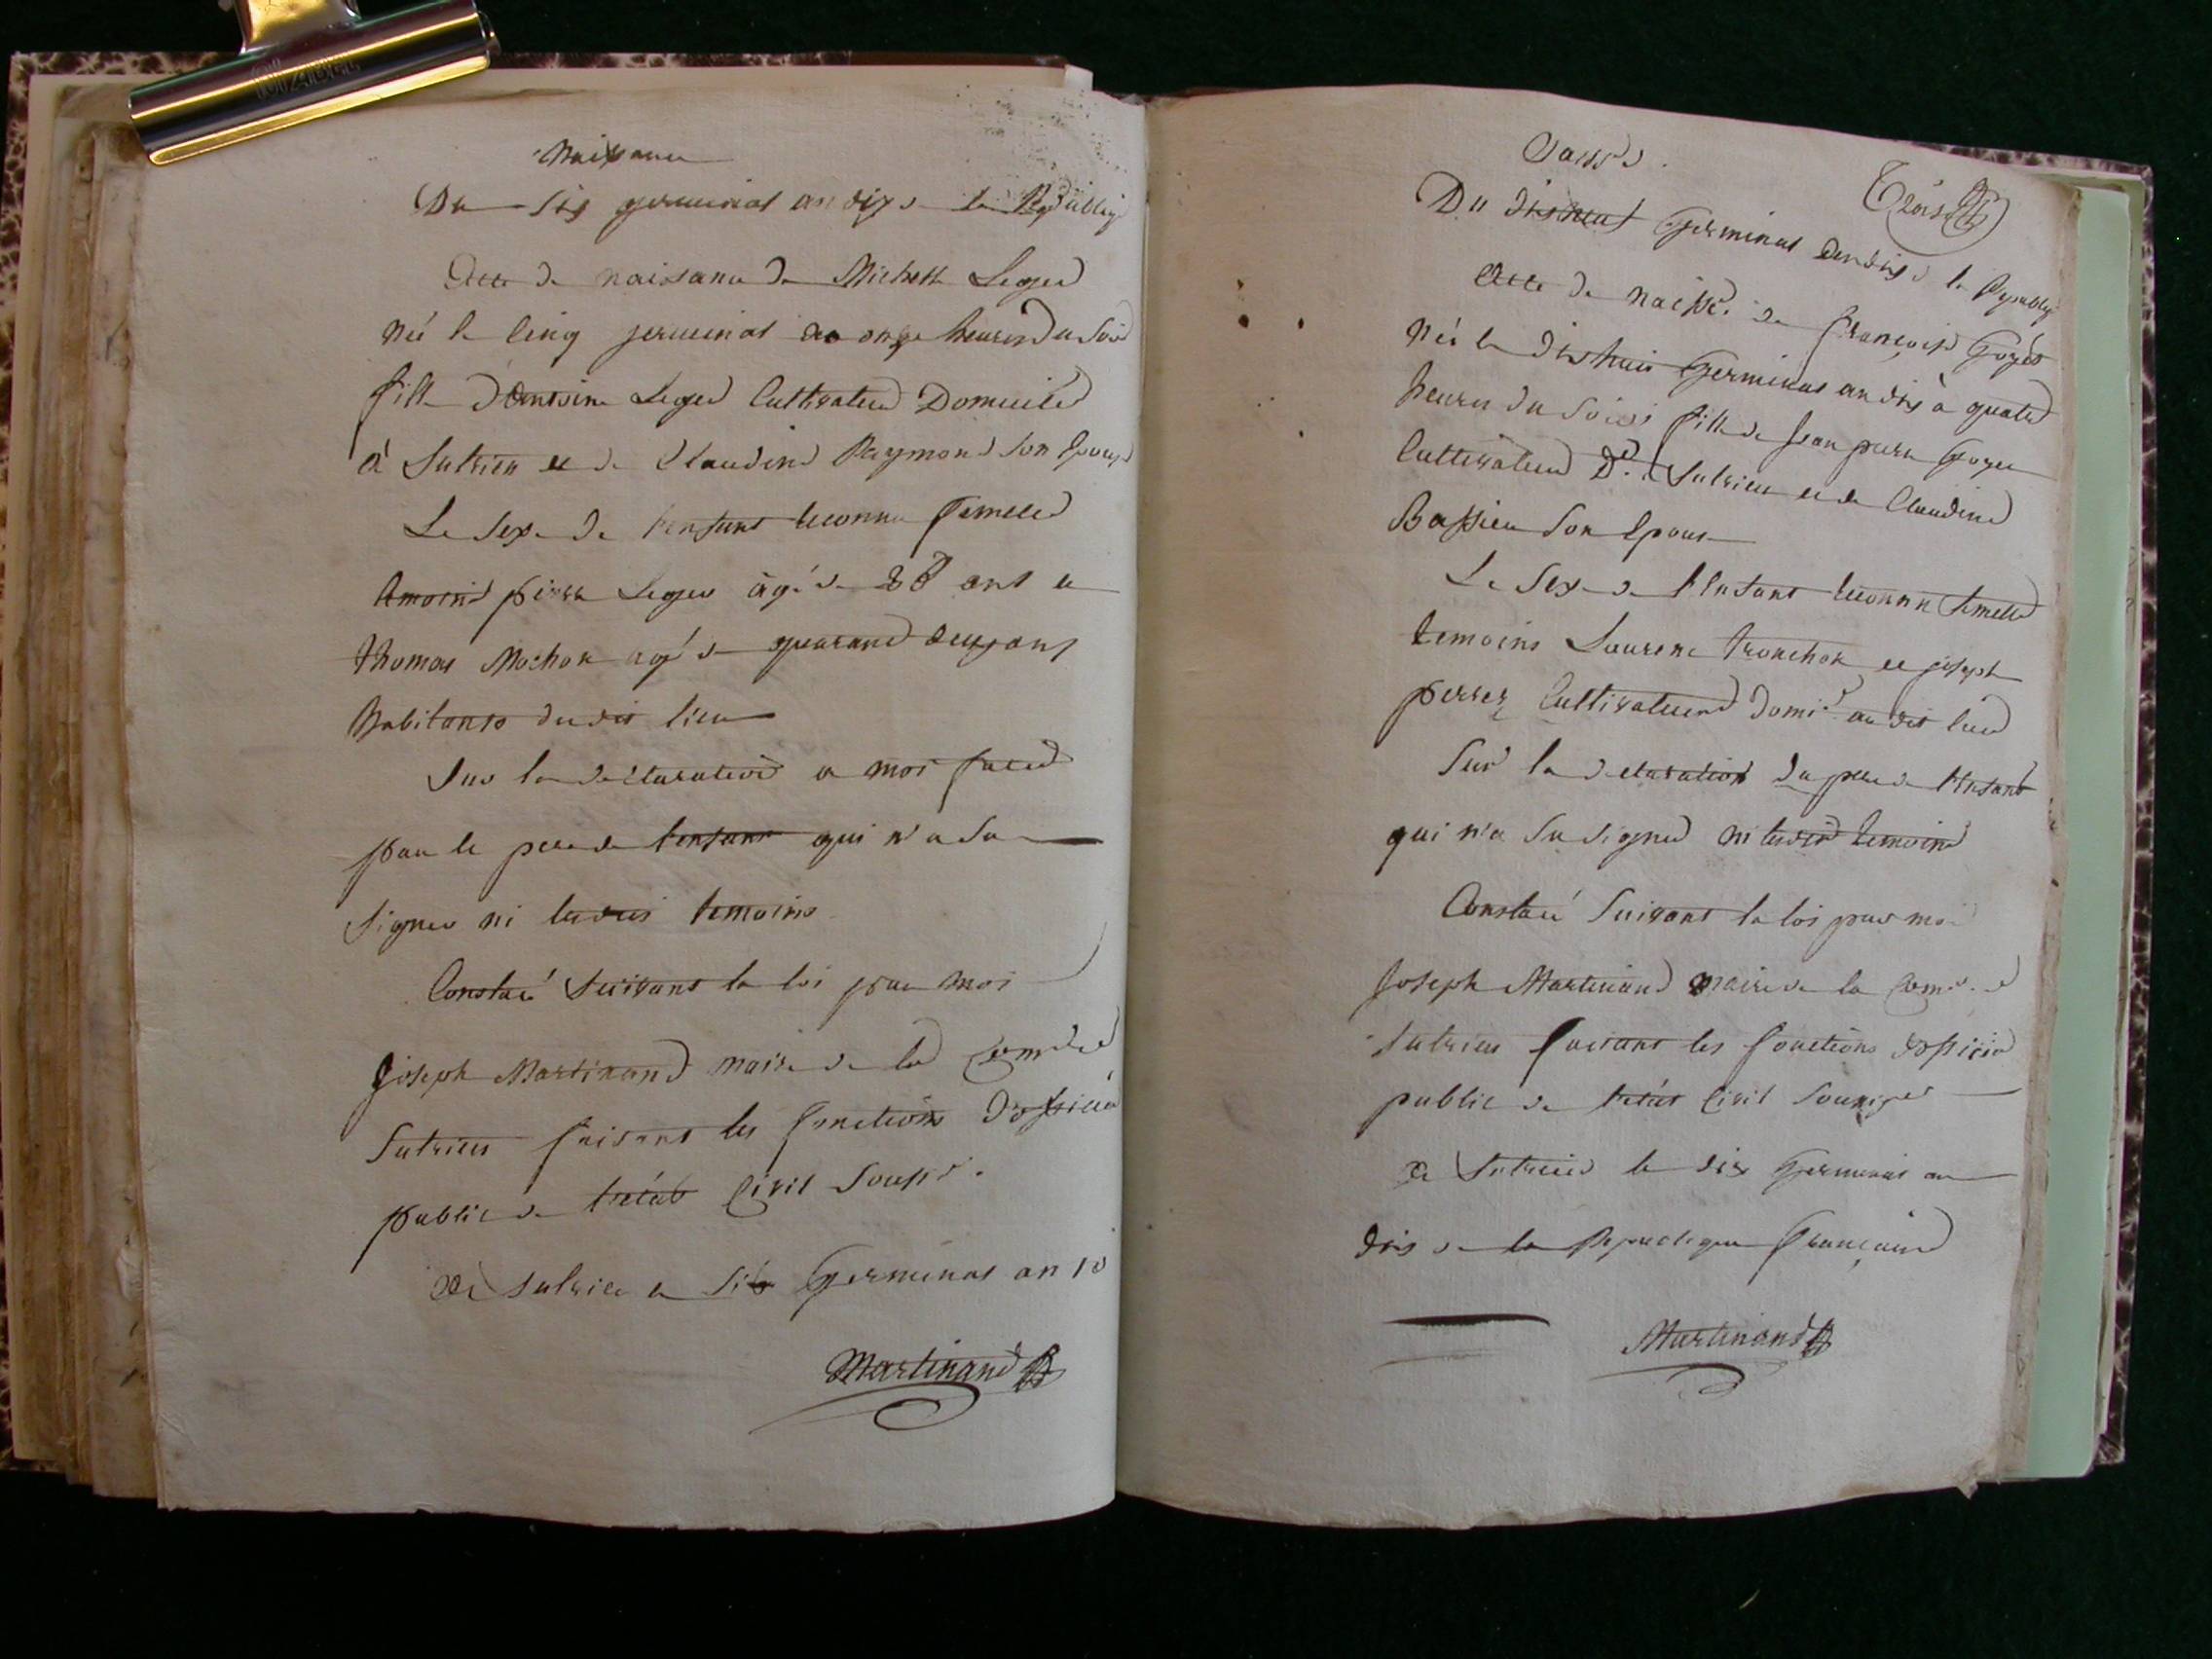 Naissance
Du six germinal an dix de la Republiq
Acte de naisance de Michelle Leger
née le cinq germinal a onze heures du soir
fille d'Antoine Leger Cultivateur Domicilie
à Sutrieu et de Claudine Reymond son Epouse
Le Sexe de l'enfant reconnu femelle
temoins pierre Leger agé de 28 ans et
thomas Mochon agé de quarante deux ans
habitants du dit lieu
Sur la declaration a moi faite
par le pere de l'enfant qui n'a su
signer ni lesdits temoins
Constaté Suivant la loi par moi
joseph Martinand maire de la Com.e de
Sutrieu faisant les fonctions d'officier
public de l'etat Civil Souss.é.
A Sutrieu le six Germinal an 10
Martinand
Naiss.e.
Trois
Du dishuit Germinal an dix de la Republiq
Acte de naiss.e. de françoise Goyet
Née le dishuit Germinal an dix à quatre
heures du soir fille de Jean pierre Goyet
Cultivateur D.é. a Sutrieu et de Claudine
Bassieu son Epouse
Le Sexe de l'Enfant reconnu femelle
temoins Laurent tronchon et joseph
perret Cultivateurs Domi.é au dit lieu
Sur la declaration du pere de l'Enfant
qui n'a Su Signer ni lesdits temoins
Constaté Suivant la loi par moi
Joseph Martinand maire de la Com.e de
Sutrieu faisant les fonctions d'officier
public de l'etat Civil Soussigné
A Sutrieu le dix Germinal an
dix de la Republique française
Martinand